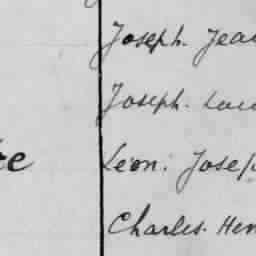 Joseph. Jean
Joseph. Lou
Léon. Joseph
Charles. Hen